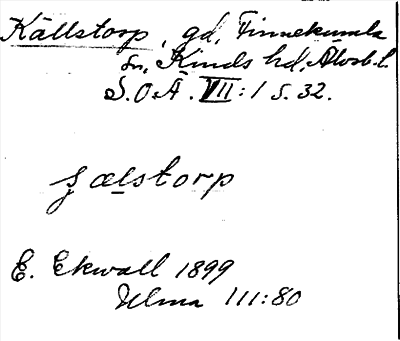 Källstorp, gd, Finnekumla
sn, Kinds hd, Älvsb. l.
S.O.Ä. VII:1 s. 32.
ʒælstorp
E. Ekwall 1899
Ulma 111:80